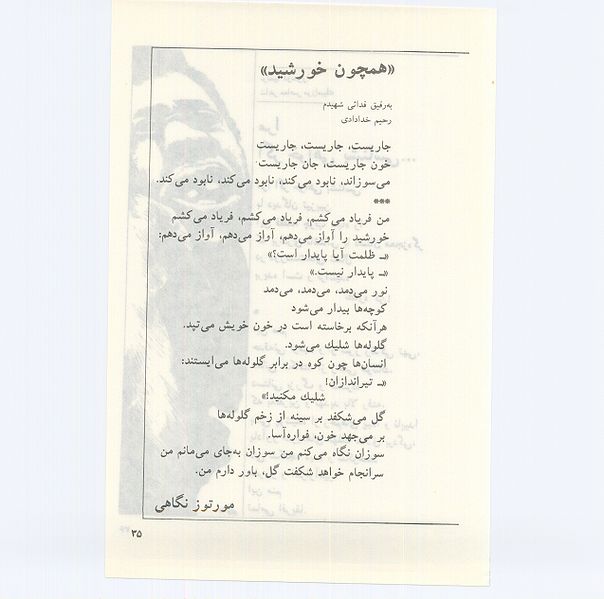 «همچون خورشید»
به‌رفیق فدائی شهیدم
رحیم خدادادی
جاریست، جاریست، جاریست
خون جاریست، جان جاریست.
می‌سوزاند، نابود می‌کند، نابود می‌کند، نابود می‌کند.
***
من فریاد می‌کشم، فریاد می‌کشم، فریاد می‌کشم
خورشید را آواز می‌دهم، آواز می‌دهم، آواز می‌دهم:
«ــ ظلمت آیا پایدار است؟»
«ــ پایدار نیست.»
نور می‌دمد، می‌دمد، می‌دمد
کوچه‌ها بیدار می‌شود
هرآنکه برخاسته است در خون خویش می‌تپد.
گلوله‌ها شلیك می‌شود.
انسان‌ها چون کوه در برابر گلوله‌ها می‌ایستند:
«ــ تیراندازان!
شلیك مکنید!»
گل می‌شکفد بر سینه از زخم گلوله‌ها
بر می‌جهد خون، فواره‌آسا.
سوزان نگاه می‌کنم من سوزان به‌جای می‌مانم من
سرانجام خواهد شکفت گل، باور دارم من.
مورتوز نگاهی
۳۵